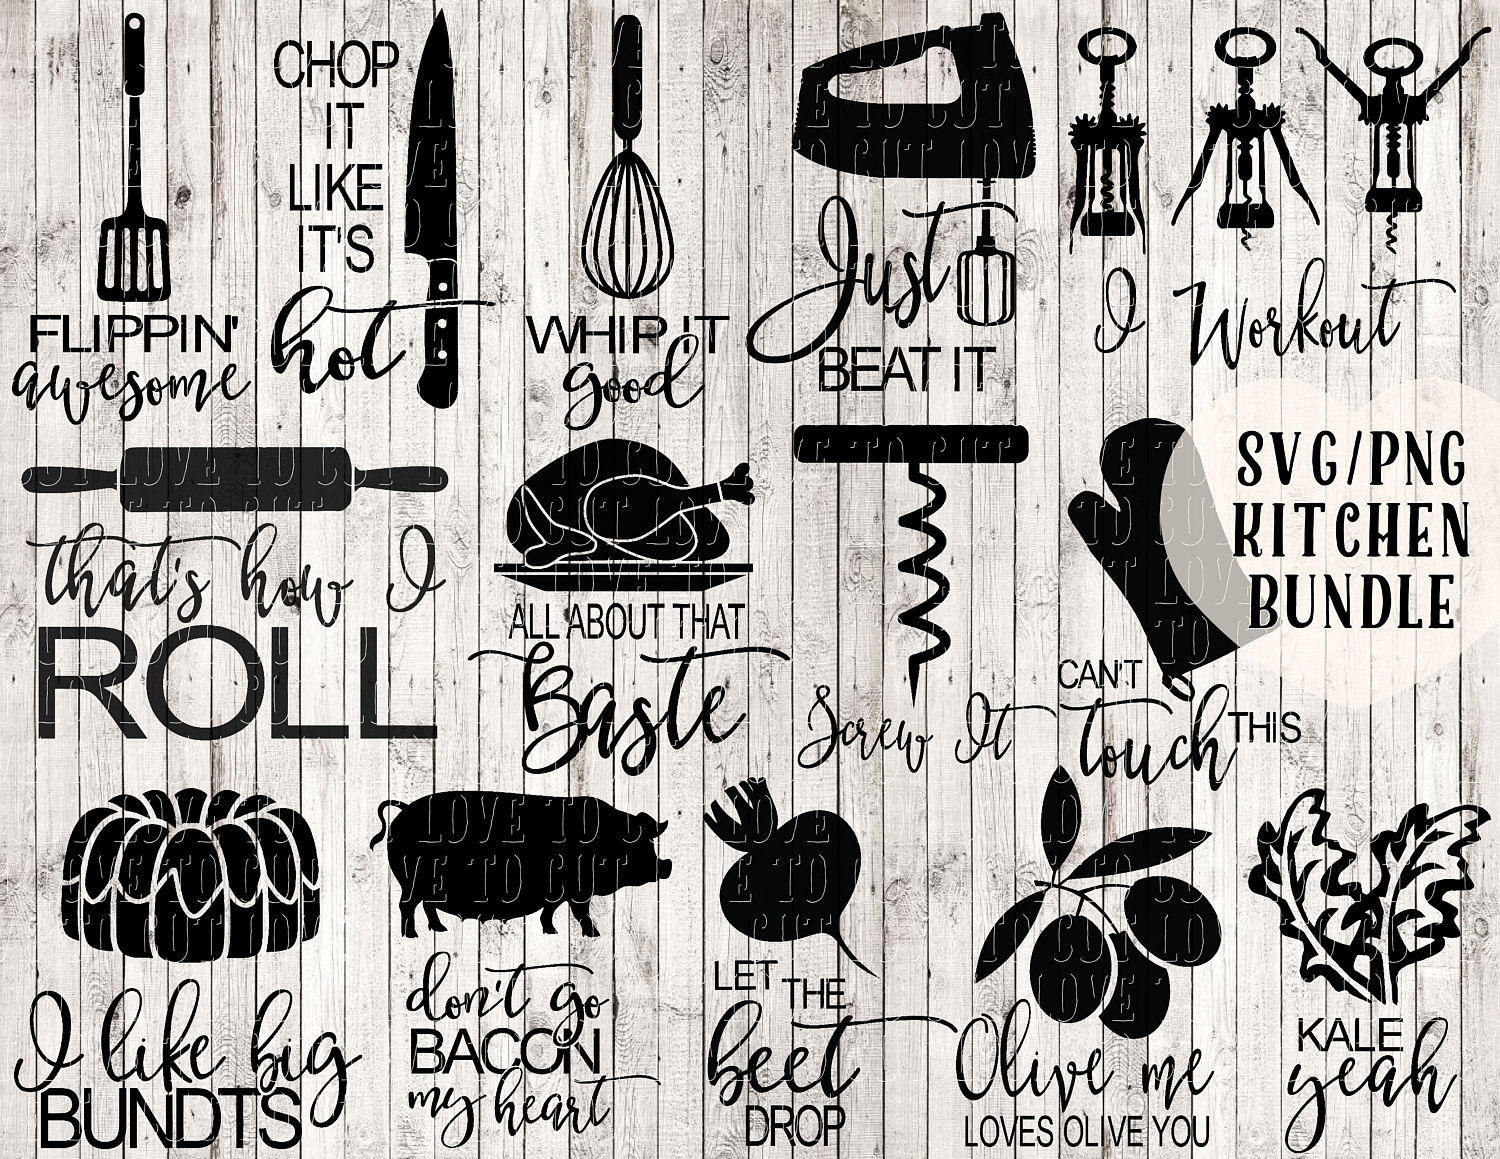 FLIPPIN'
awesome
CHOP
IT
LIKE
IT'S
hot
WHIP IT
good
Just
BEAT IT
I Workout
that's how I
ROLL
ALL ABOUT THAT
Baste
Screw It
CAN'T
touch THIS
SVG/PNG
KITCHEN
BUNDLE
I like big
BUNDTS
don't go
BACON
my heart
LET THE
beet
DROP
Olive me
LOVES OLIVE YOU
KALE
yeah
LOVE TO CUT